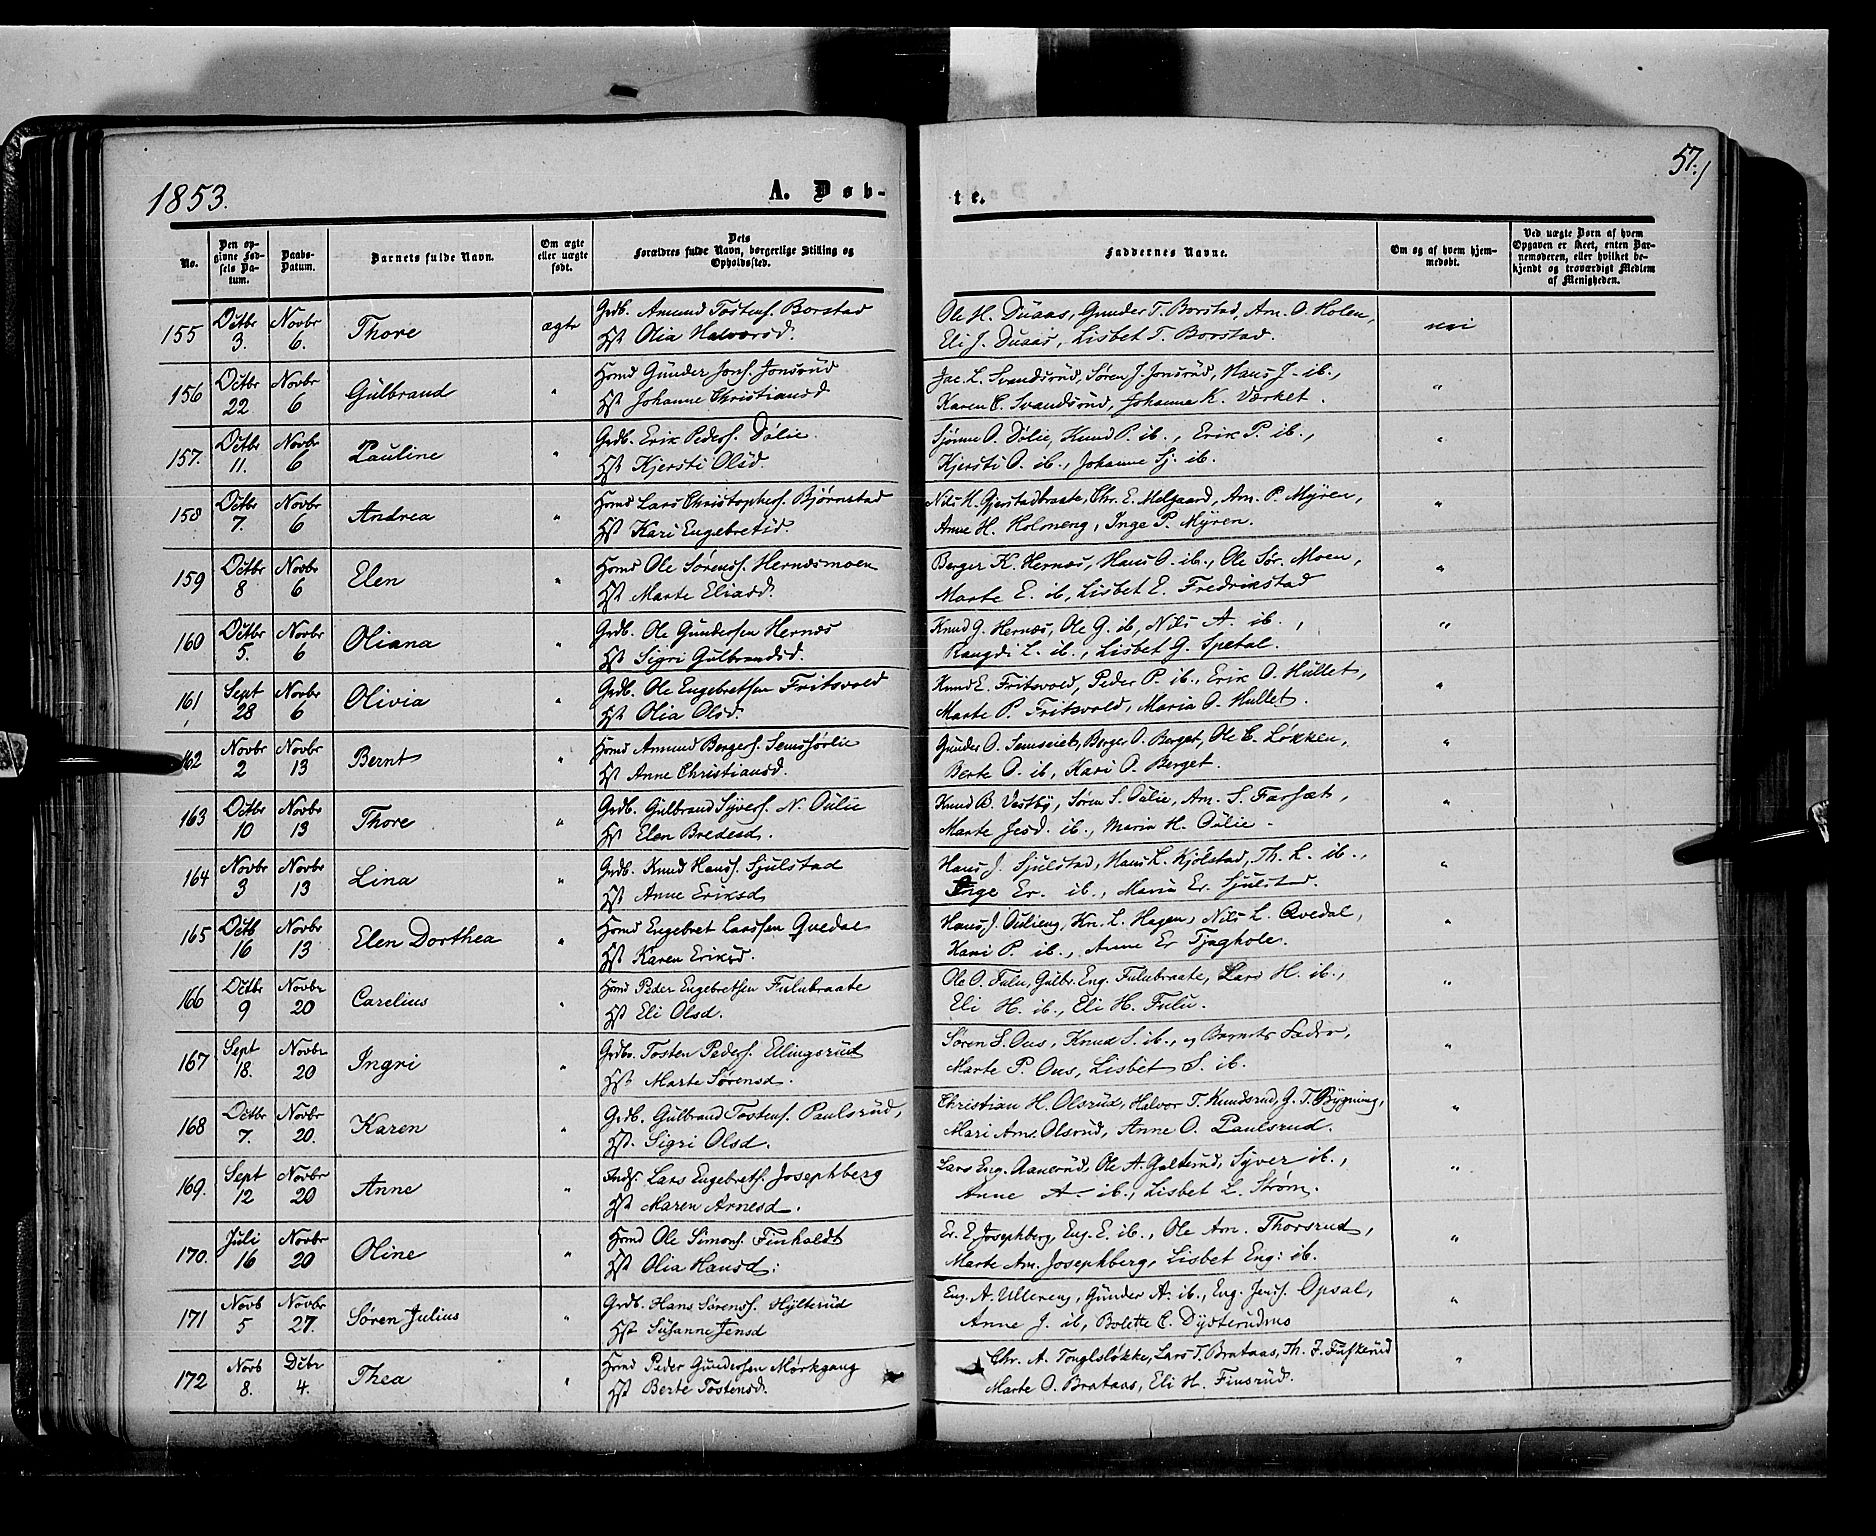 1853.
A. Døb-
te.
57.
No.
Den op-
givne Fød-
sels Da-
tum.
Daabs-
Datum.
Barnets fulde Navn.
Om ægte
eller uægte
født.
Dets
Forældres fulde Navn, borgerlige Stilling og
Opholdssted.
Faddernes Navne.
Om og af hvem hjem-
medøbt.
Ved uægte Børn af hvem
Opgaven er skeet, enten Bar-
nemoderen, eller hvilket be-
kjendt og troværdigt Medlem
af Menigheden.
155 Octbr 3. Novbr 6. Thore ægte Grdb. Amund Tostens. Borstad
Hst Olia Halvorsd.
Ole H. Duaas, Gunder T. Borstad, Am. O. Holen,
Eli J. Duaas, Lisbet T. Borstad.
nei
156 Octbr 22. Novbr 6 Gulbrand " Hmd Gunder Jons. Jonsrud
Hst Johanne Christiansd
Jac. L. Svandsrud, Søren J. Jonsrud, Hans J. ib.,
Karen C. Svandsrud, Johanna K. Værket.
"
157. Octbr 11. Novbr 6 Pauline " Grdb. Erik Peders. Dølie.
Hst Kjersti Olsd.
Sjønne O. Dølie, Knud P. ib., Erik P. ib.,
Kjersti O. ib., Johanne Sj. ib.
"
158 Octbr 7. Novbr 6 Andrea " Hmd Lars Christophers. Bjørnstad
Hst Kari Engebretsd.
Nils H. Gjerstadbraate, Chr. E. Melgaard, Am. P. Myren,
Anne H. Holoneng, Inge P. Myren.
"
159 Octbr 8. Novbr 6 Elen " Hmd Ole Sørens. Hernæsmoen
Hst Marte Eliasd.
Berger K. Hernæs, Hans O. ib., Ole Sør. Moen,
Marte E. ib, Lisbet E. Fredrikstad
"
160 Octbr 5. Novbr 6 Oliana " Grdb. Ole Gundersen Hernæs
Hst Sigri Gulbrandsd.
Knud G. Hernæs, Ole G. ib, Nils A. ib.,
Rangdi L. ib., Lisbet G. Spetal.
"
161 Sept 28 Novbr 6 Olivia " Grdb. Ole Engebretsen Fritsvold
Hst Olia Olsd.
Knud E. Fritsvold, Peder P. ib., Erik O. Hullet,
Marte P. Fritsvold, Maria O. Hullet.
"
162 Novbr 2 Novbr 13 Bernt " Hmd Amund Bergers. Semsjølie
Hst Anne Christiansd.
Gunder O. Semseiet, Berger O. Berget, Ole C. Løkken,
Berte O. ib, Kari O. Berget.
"
163 Octbr 10 Novbr 13 Thore " Grdb. Gulbrand Syvers. N. Oulie
Hst Elen Bredesd.
Knud B. Vestby, Søren S. Oulie, Am. S. Farsæt,
Marte Jesd. ib., Maria H. Oulie.
"
164 Novbr 3 Novbr 13 Lina " Grdb. Knud Hans. Sjulstad
Hst Anne Eriksd
Hans J. Sjulstad, Hans L. Kjølstad, Th. L. ib.,
Inge Er. ib., Maria Er. Sjulstad.
"
165 Octb 16 Novbr 13 Elen Dorthea " Hmd Engebret Larssen Qvedal
Hst Karen Eriksd.
Hans J. Oulieng, Kn. L. Hagen, Nils L. Qvedal,
Kari P. ib., Anne Er Tjaghole.
"
166 Octbr 9 Novbr 20 Carelius " Hmd Peder Engebretsen Fulubraate
Hst Eli Olsd.
Ole O. Fulu, Gulbr. Eng. Fulubraate, Lars H. ib.,
Eli H. ib., Eli H. Fulu.
"
167 Sept 18. Novbr 20 Ingri " Grdb. Tosten Peders. Ellingsrud
Hst Marte Sørensd.
Søren S. Ous, Knud S. ib., og Barnets Fader,
Marte P. Ous, Lisbet S. ib.
"
168 Octbr 7. Novbr 20. Karen " Grdb. Gulbrand Tostens. Paulsrud,
Hst. Sigri Olsd.
Christian H. Olsrud, Halvor T. Knudsrud, G. T. Bygning,
Mari Am. Olsrud, Anne O. Paulsrud.
"
169. Sept 12 Novbr 20 Anne " Inds. Lars Engebrets. Josephberg
Hst Maren Arnesd.
Lars Eng. Aanerud, Ole A. Galterud, Syver ib.,
Anne A- ib., Lisbet L. Strøm.
"
170. Juli 16 Novbr 20 Oline " Hmd Ole Simons. Finholdt
Hst Olia Hansd.
Er. E. Josephberg, Eng. E. ib., Ole Am. Thorsrud,
Marte Am. Josephberg, Lisbet Eng. ib.
"
171 Novb 5 Novbr 27. Søren Julius " Grdb. Hans Sørens. Hylterud
Hst Susanne Jensd
Eng. A. Ullereng, Gunder A. ib., Eng. Jens. Opsal,
Anne J. ib, Bolette C. Dysterudnes
"
172 Novb 8. Dcbr 4. Thea " Hmd Peder Gundersen Mørkgang
Hst Berte Tostensd.
Chr. A. Tonglsløkke, Lars T. Brataas, Th. J. Fuskerud
Marte O. Brataas, Eli H. Finsrud.
"